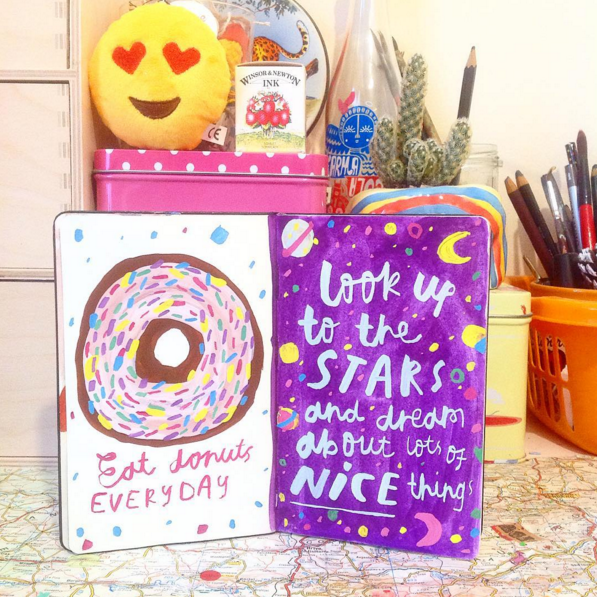 WINSOR & NEWTON
INK
CE
KARMA
COLA
Eat donuts
EVERYDAY
Look up
to the
STARS
and dream
about lots of
NICE things